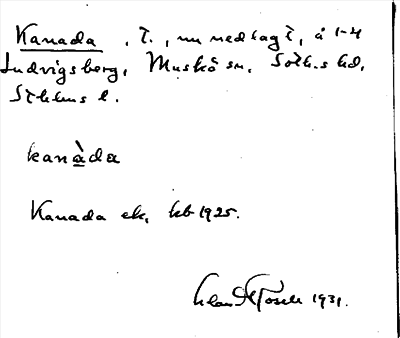 Kanada, t., nu nedlagt, å 1-4
Ludvigsberg, Muskö sn, Soth.s hd,
Sthlms l.
kanàda
Kanada ek, kb 1925.
1931.